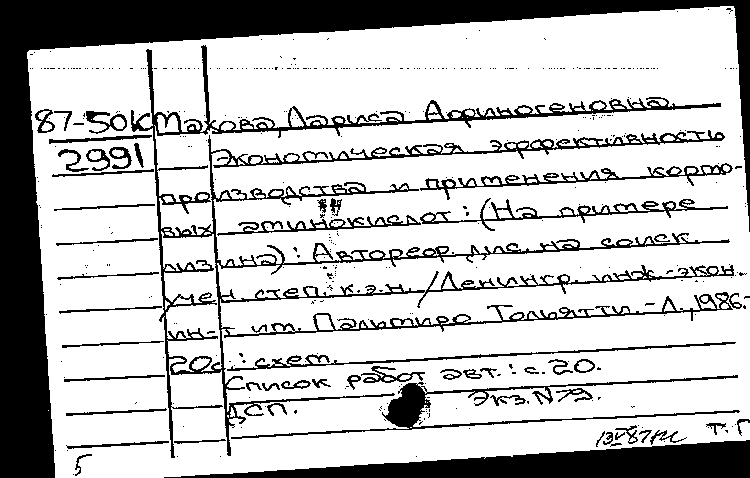 87-50К Махова, Лариса Афиногеновна.
2991 Экономическая эффективность
производства и применения кормо-
вых аминокислот: (На примере
лизина): Автореф. дис. на соиск.
учен. степ. к.э.н. /Ленингр. инж.-экон.
ин-т им. Пальмиро Тольятти.-Л., 1986.-
20с.: схем.
Список работ авт.: с. 20.
ДСП. Экз. N 79.
5